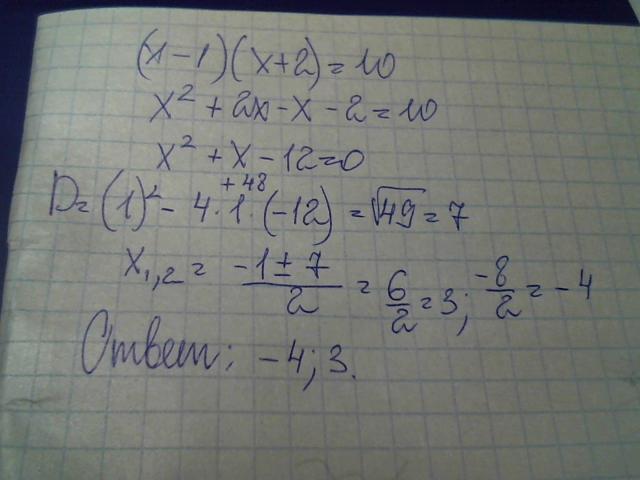 (x-1)(x+2)=10
x² + 2x - x - 2 = 10
x² + x - 12 = 0
+48
D = (1)² - 4·1·(-12) = √49 = 7
x₁,₂ = (-1 ± 7)/2 = 6/2 = 3; -8/2 = -4
Ответ: -4; 3.